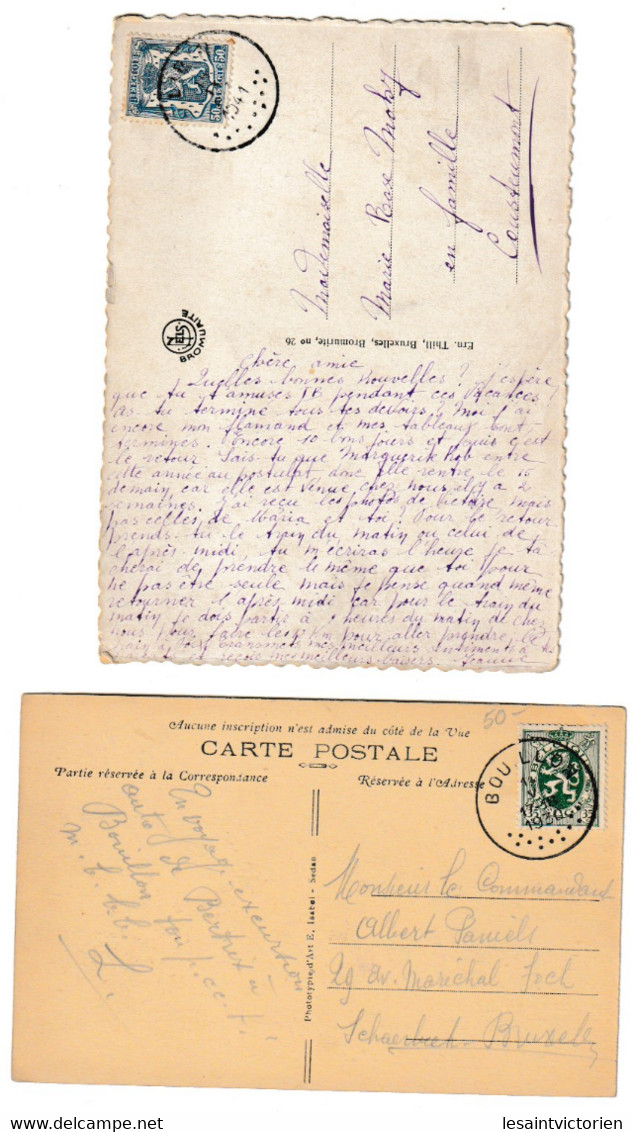 BELGIQUE
50
1941
Mademoiselle
Marie Rose Mohy
en famille
Cousteumont
NELS
BROMURITE
Ern. Thill, Bruxelles, Bromurite, no 26
Chère amie
Quelles bonnes nouvelles ? J'espère
que tu t'amuses TB pendant ces vacances
As tu terminé tous tes devoirs ? Moi j'ai
encore mon flamand et mes tableaux sont
terminés. Encore 10 bons jours et puis c'est
le retour Sais-tu que Marguerite entre
cette année au postulat donc elle rentre le 15
demain car elle est venue chez nous il y a 2
semaines. J'ai reçu les photos de Victoire mais
pas celles de Maria et toi ? Pour le retour
prends-tu le train du matin ou celui de
l'après midi, tu m'écriras l'heure je tâ
cherai de prendre le même que toi pour
ne pas être seule mais je pense quand même
retourner l'après midi car pour le train du
matin je dois partir à heures du matin de chez
nous pour faire les km pour aller prendre le
train à mes meilleurs sentiments à tes
et reçois mes meilleurs baisers. Jeanne
50-
Aucune inscription n'est admise du côté de la Vue
CARTE POSTALE
Partie réservée à la Correspondance
Réservée à l'Adresse
BOUILLON
1930
35
En voyage excursion
auto de Bertrix à
Bouillon
m. b. b. b.
L.
Phototypie d'Art E. Isabel - Sedan
Monsieur le Commandant
Albert Daniels
29 av. Maréchal Foch
Schaerbeek-Bruxelles
lesaintvictorien